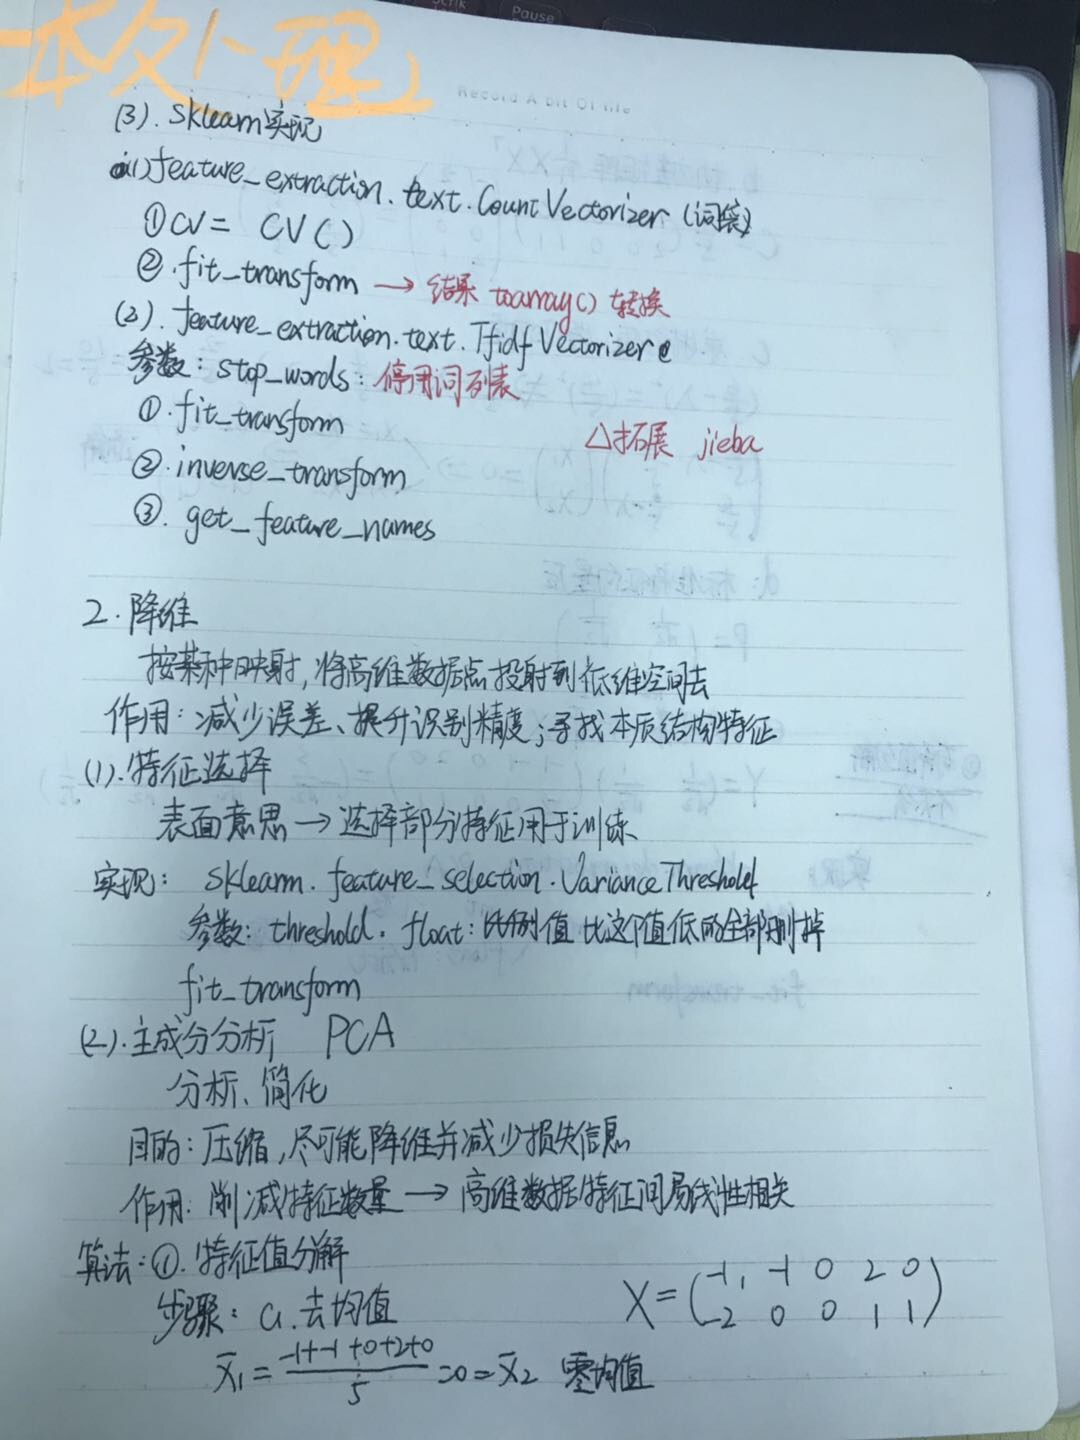 Pause
本处理
Record A bit Of life
(3). Sklearn实现
(1) feature_extraction.text.CountVectorizer (词袋)
① CV = CV()
②.fit_transform → 结果 toarray() 转换
(2). feature_extraction.text.TfidfVectorizer
参数: stop_words: 停用词列表
①.fit_transform
△拓展 jieba
②.inverse_transform
③.get_feature_names
2.降维
按某种映射,将高维数据点投射到低维空间去
作用: 减少误差、提升识别精度;寻找本质结构特征
(1).特征选择
表面意思 → 选择部分特征用于训练
实现: Sklearn.feature_selection.VarianceThreshold
参数: threshold. float: 比例值 比这个值低的全部删掉
fit_transform
(2).主成分分析 PCA
分析、简化
目的: 压缩,尽可能降维并减少损失信息
作用: 削减特征数量 → 高维数据特征间易线性相关
算法: ①.特征值分解
步骤: a.去均值
X = (-1, -1 0 2 0
-2 0 0 1 1)
x̄1 = (-1+-1+0+2+0)/5 = 0 = x̄2 零均值